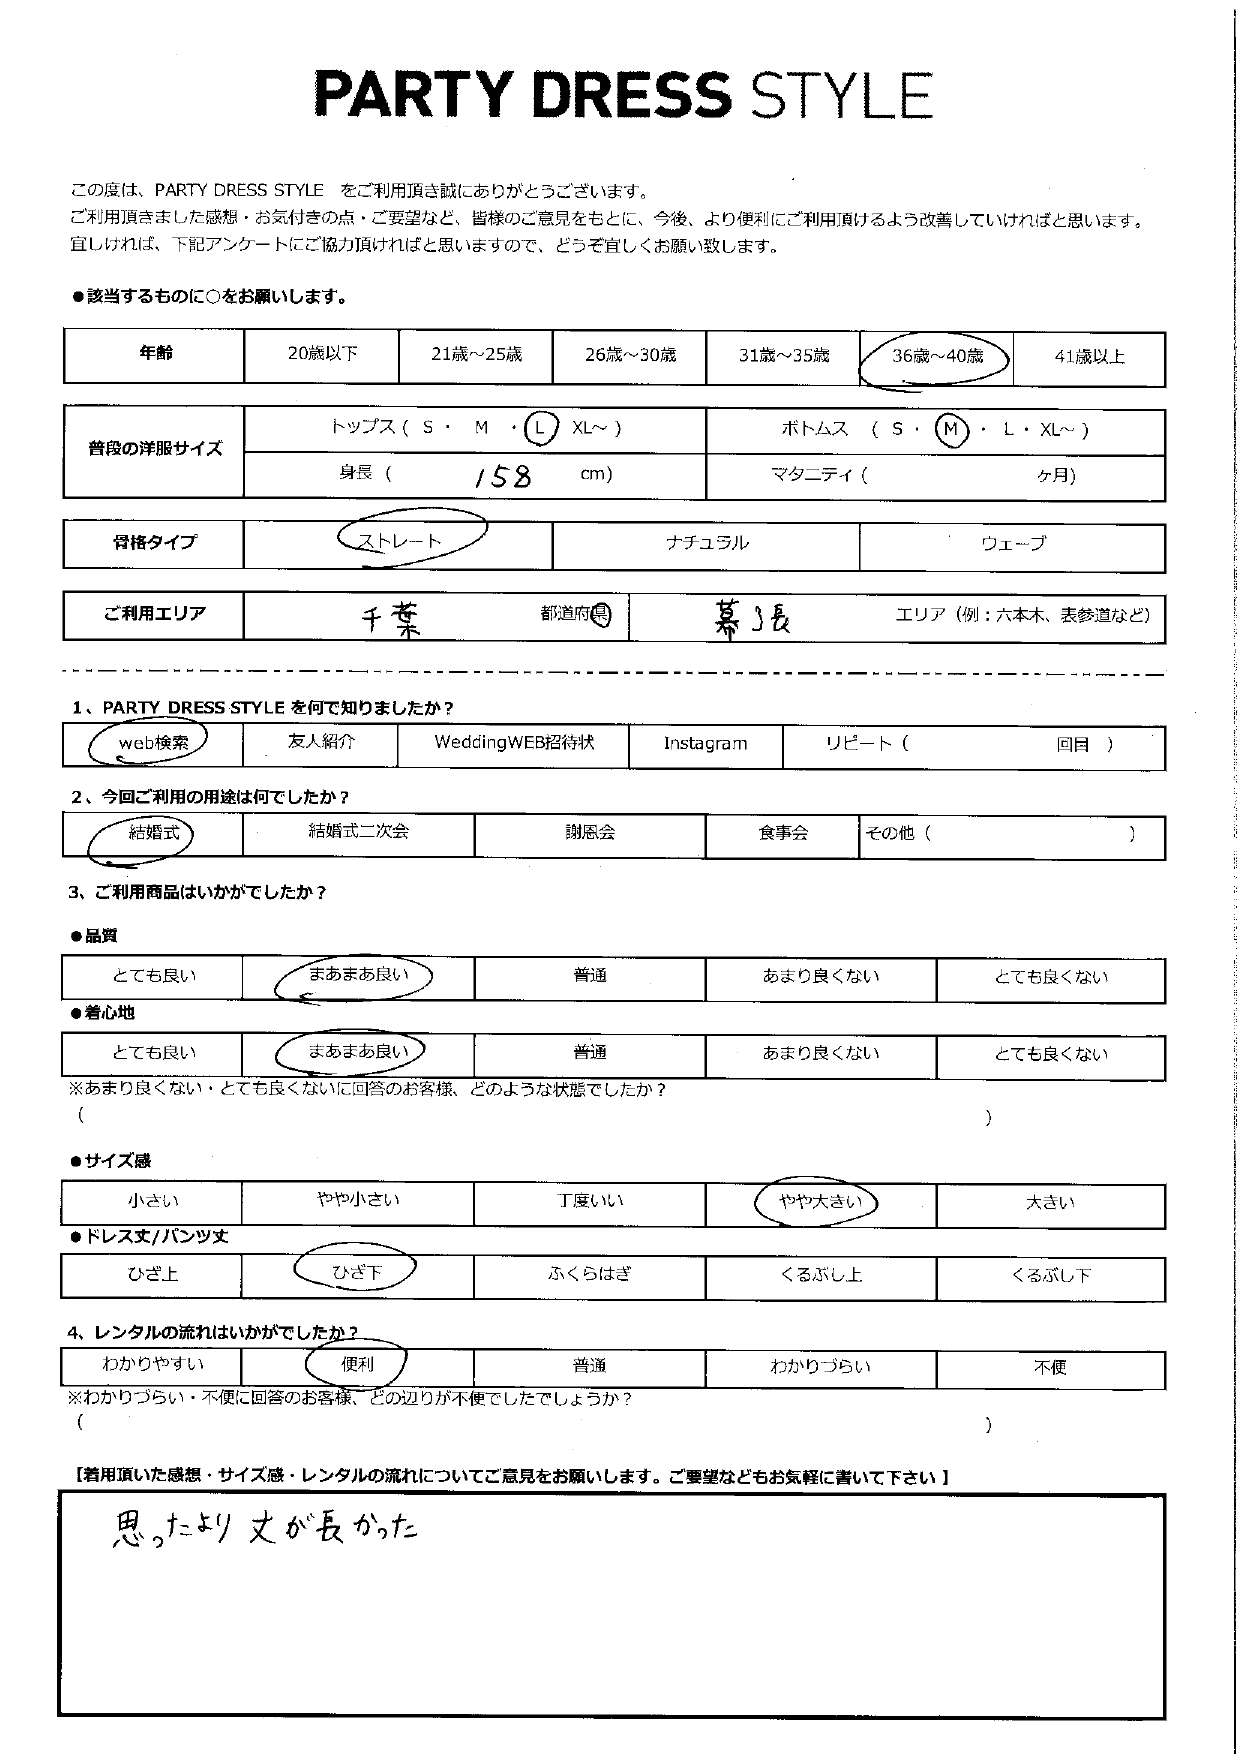 PARTY DRESS STYLE
この度は、PARTY DRESS STYLE をご利用頂き誠にありがとうございます。
ご利用頂きました感想・お気付きの点・ご要望など、皆様のご意見をもとに、今後、より便利にご利用頂けるよう改善していければと思います。
宜しければ、下記アンケートにご協力頂ければと思いますので、どうぞ宜しくお願い致します。
●該当するものに○をお願いします。
年齢 20歳以下 21歳～25歳 26歳～30歳 31歳～35歳 36歳～40歳 41歳以上
普段の洋服サイズ
トップス ( S ・ M ・ L XL～ ) ボトムス ( S ・ M ・ L ・ XL～ )
身長 ( 158 cm) マタニティ ( ヶ月)
骨格タイプ ストレート ナチュラル ウェーブ
ご利用エリア 千葉 都道府県 幕張 エリア（例：六本木、表参道など）
1、PARTY DRESS STYLE を何で知りましたか？
web検索 友人紹介 WeddingWEB招待状 Instagram リピート ( 回目 )
2、今回ご利用の用途は何でしたか？
結婚式 結婚式二次会 謝恩会 食事会 その他 ( )
3、ご利用商品はいかがでしたか？
●品質
とても良い まあまあ良い 普通 あまり良くない とても良くない
●着心地
とても良い まあまあ良い 普通 あまり良くない とても良くない
※あまり良くない・とても良くないに回答のお客様、どのような状態でしたか？
( )
●サイズ感
小さい やや小さい 丁度いい やや大きい 大きい
●ドレス丈/パンツ丈
ひざ上 ひざ下 ふくらはぎ くるぶし上 くるぶし下
4、レンタルの流れはいかがでしたか？
わかりやすい 便利 普通 わかりづらい 不便
※わかりづらい・不便に回答のお客様、どの辺りが不便でしたでしょうか？
( )
【着用頂いた感想・サイズ感・レンタルの流れについてご意見をお願いします。ご要望などもお気軽に書いて下さい 】
思ったより丈が長かった